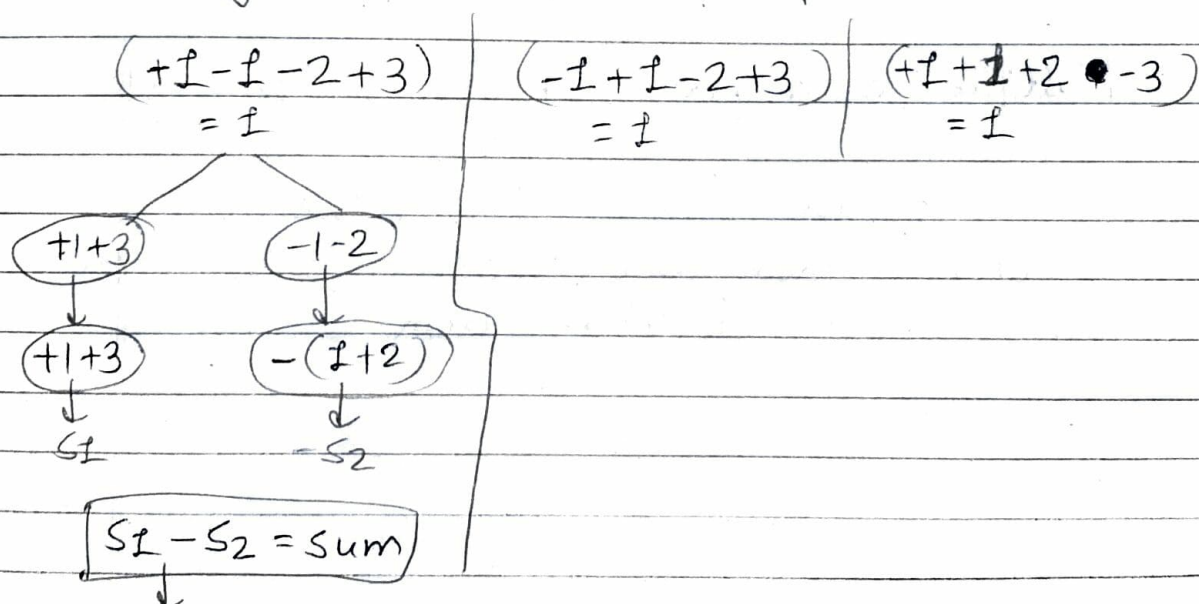 (+1-1-2+3)
= 1
(-1+1-2+3)
= 1
(+1+1+2 -3)
= 1
+1+3
-1-2
+1+3
-(1+2)
S1
-S2
S1-S2 = Sum